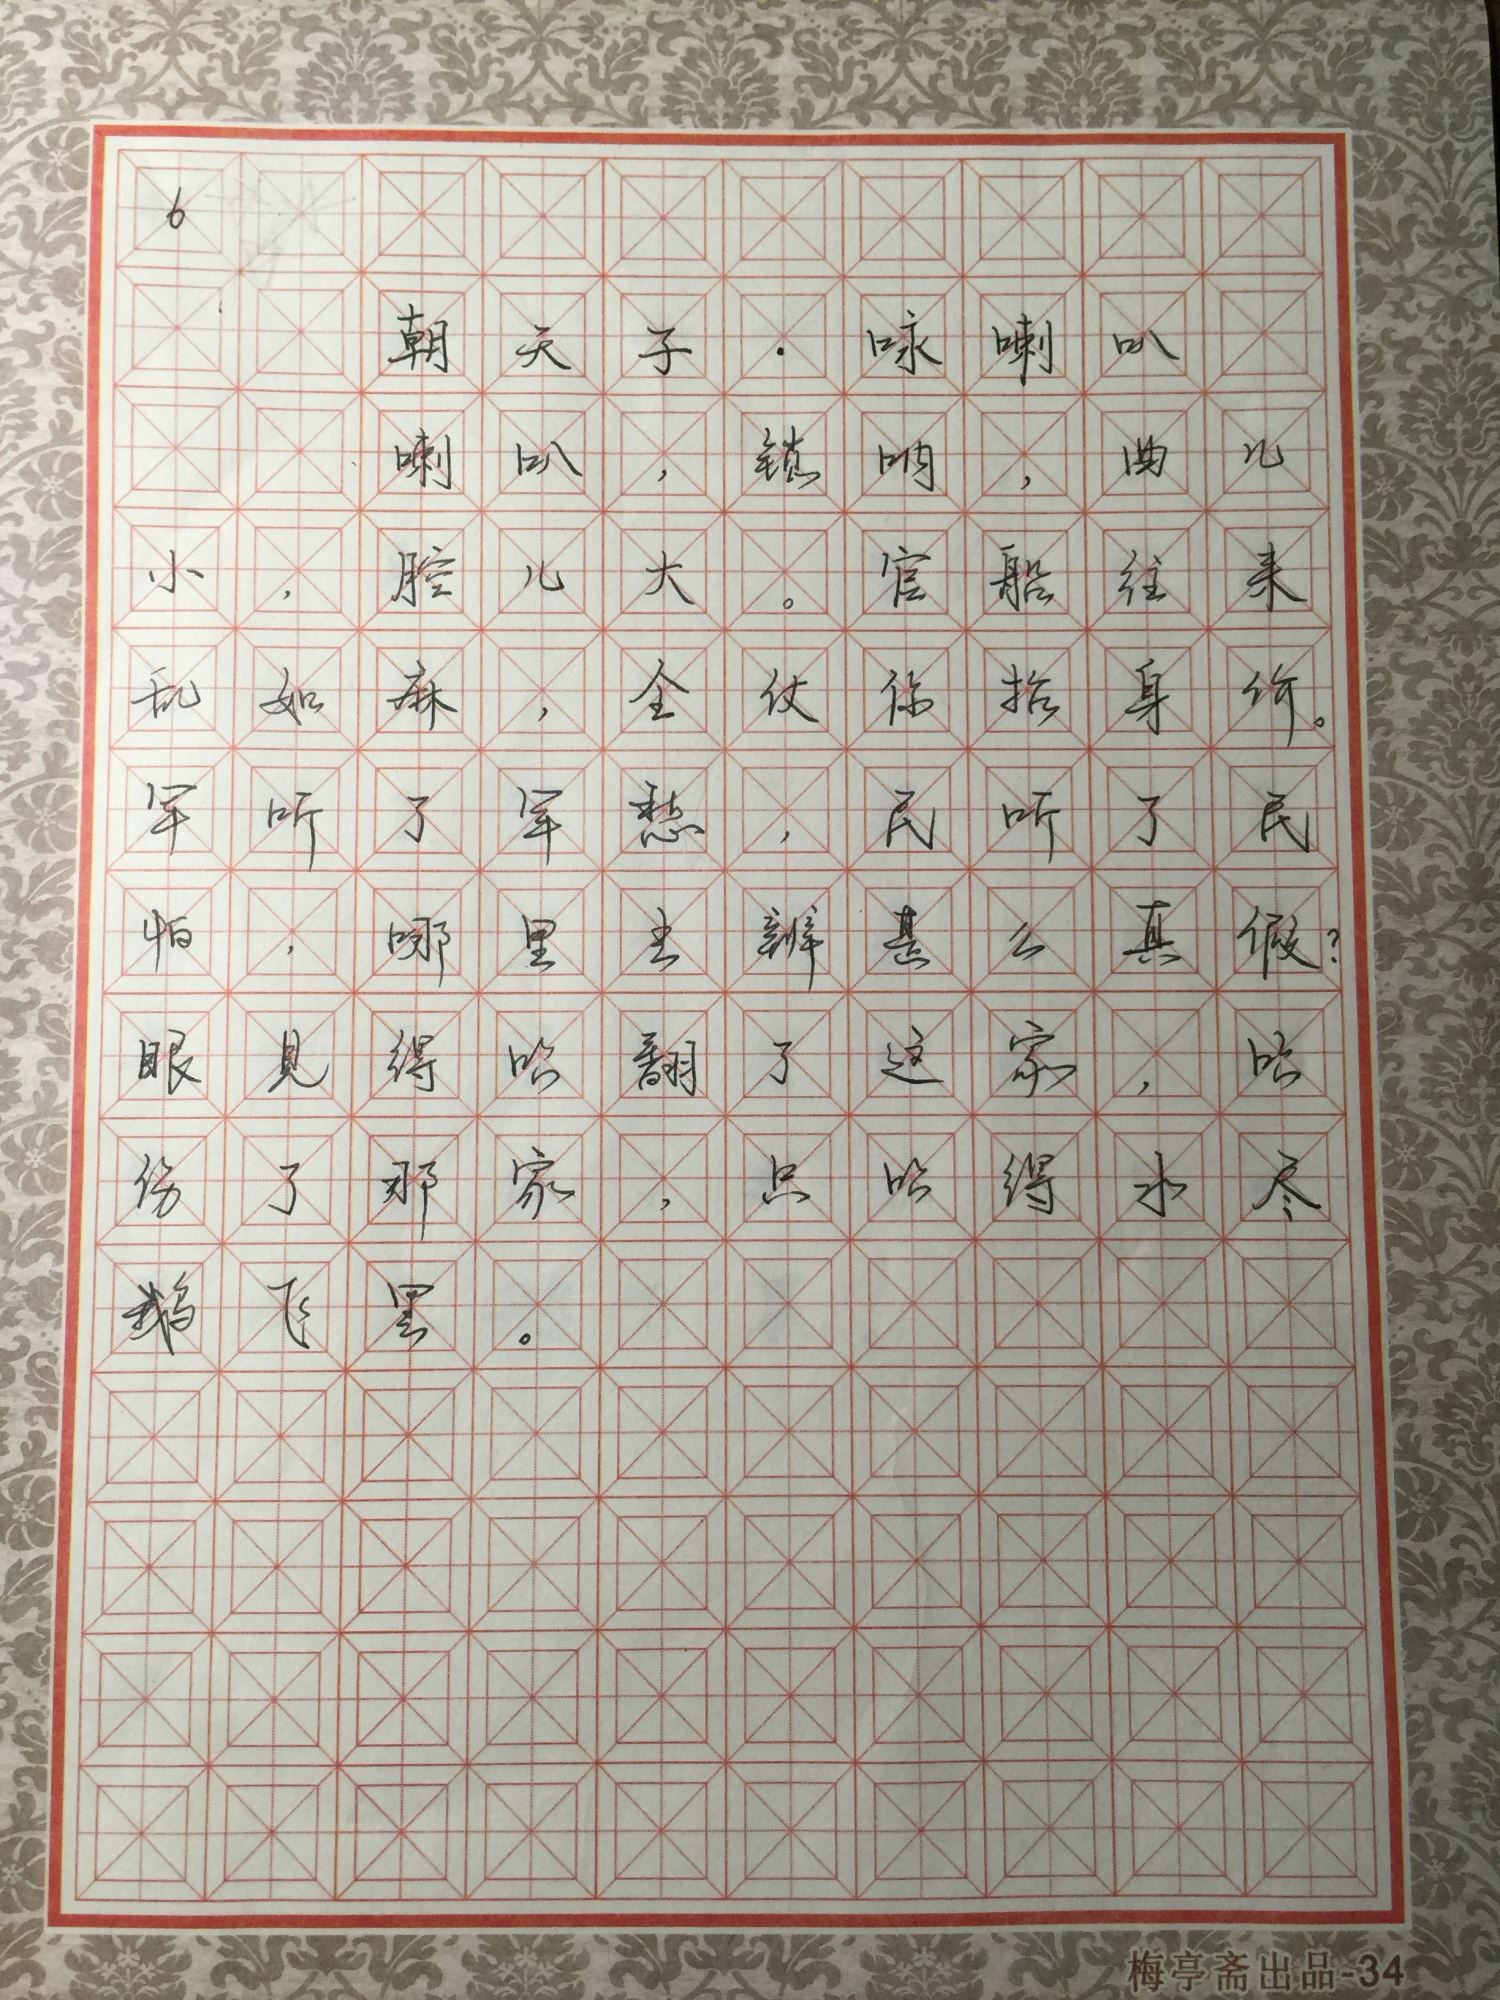 6
朝天子·咏喇叭
喇叭,锁呐,曲儿
小,腔儿大。官船往来
乱如麻,全仗你抬身价。
军听了军愁,民听了民
怕,哪里去辨甚么真假?
眼见得吹翻了这家,吹
伤了那家,只吹得水尽
鹅飞罢。
梅亭斋出品-34